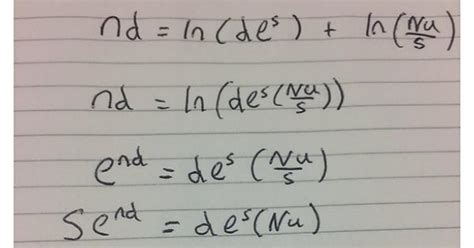 nd = ln(de^s) + ln(Nu/s)
nd = ln(de^s(Nu/s))
e^nd = de^s (Nu/s)
Se^nd = de^s(Nu)